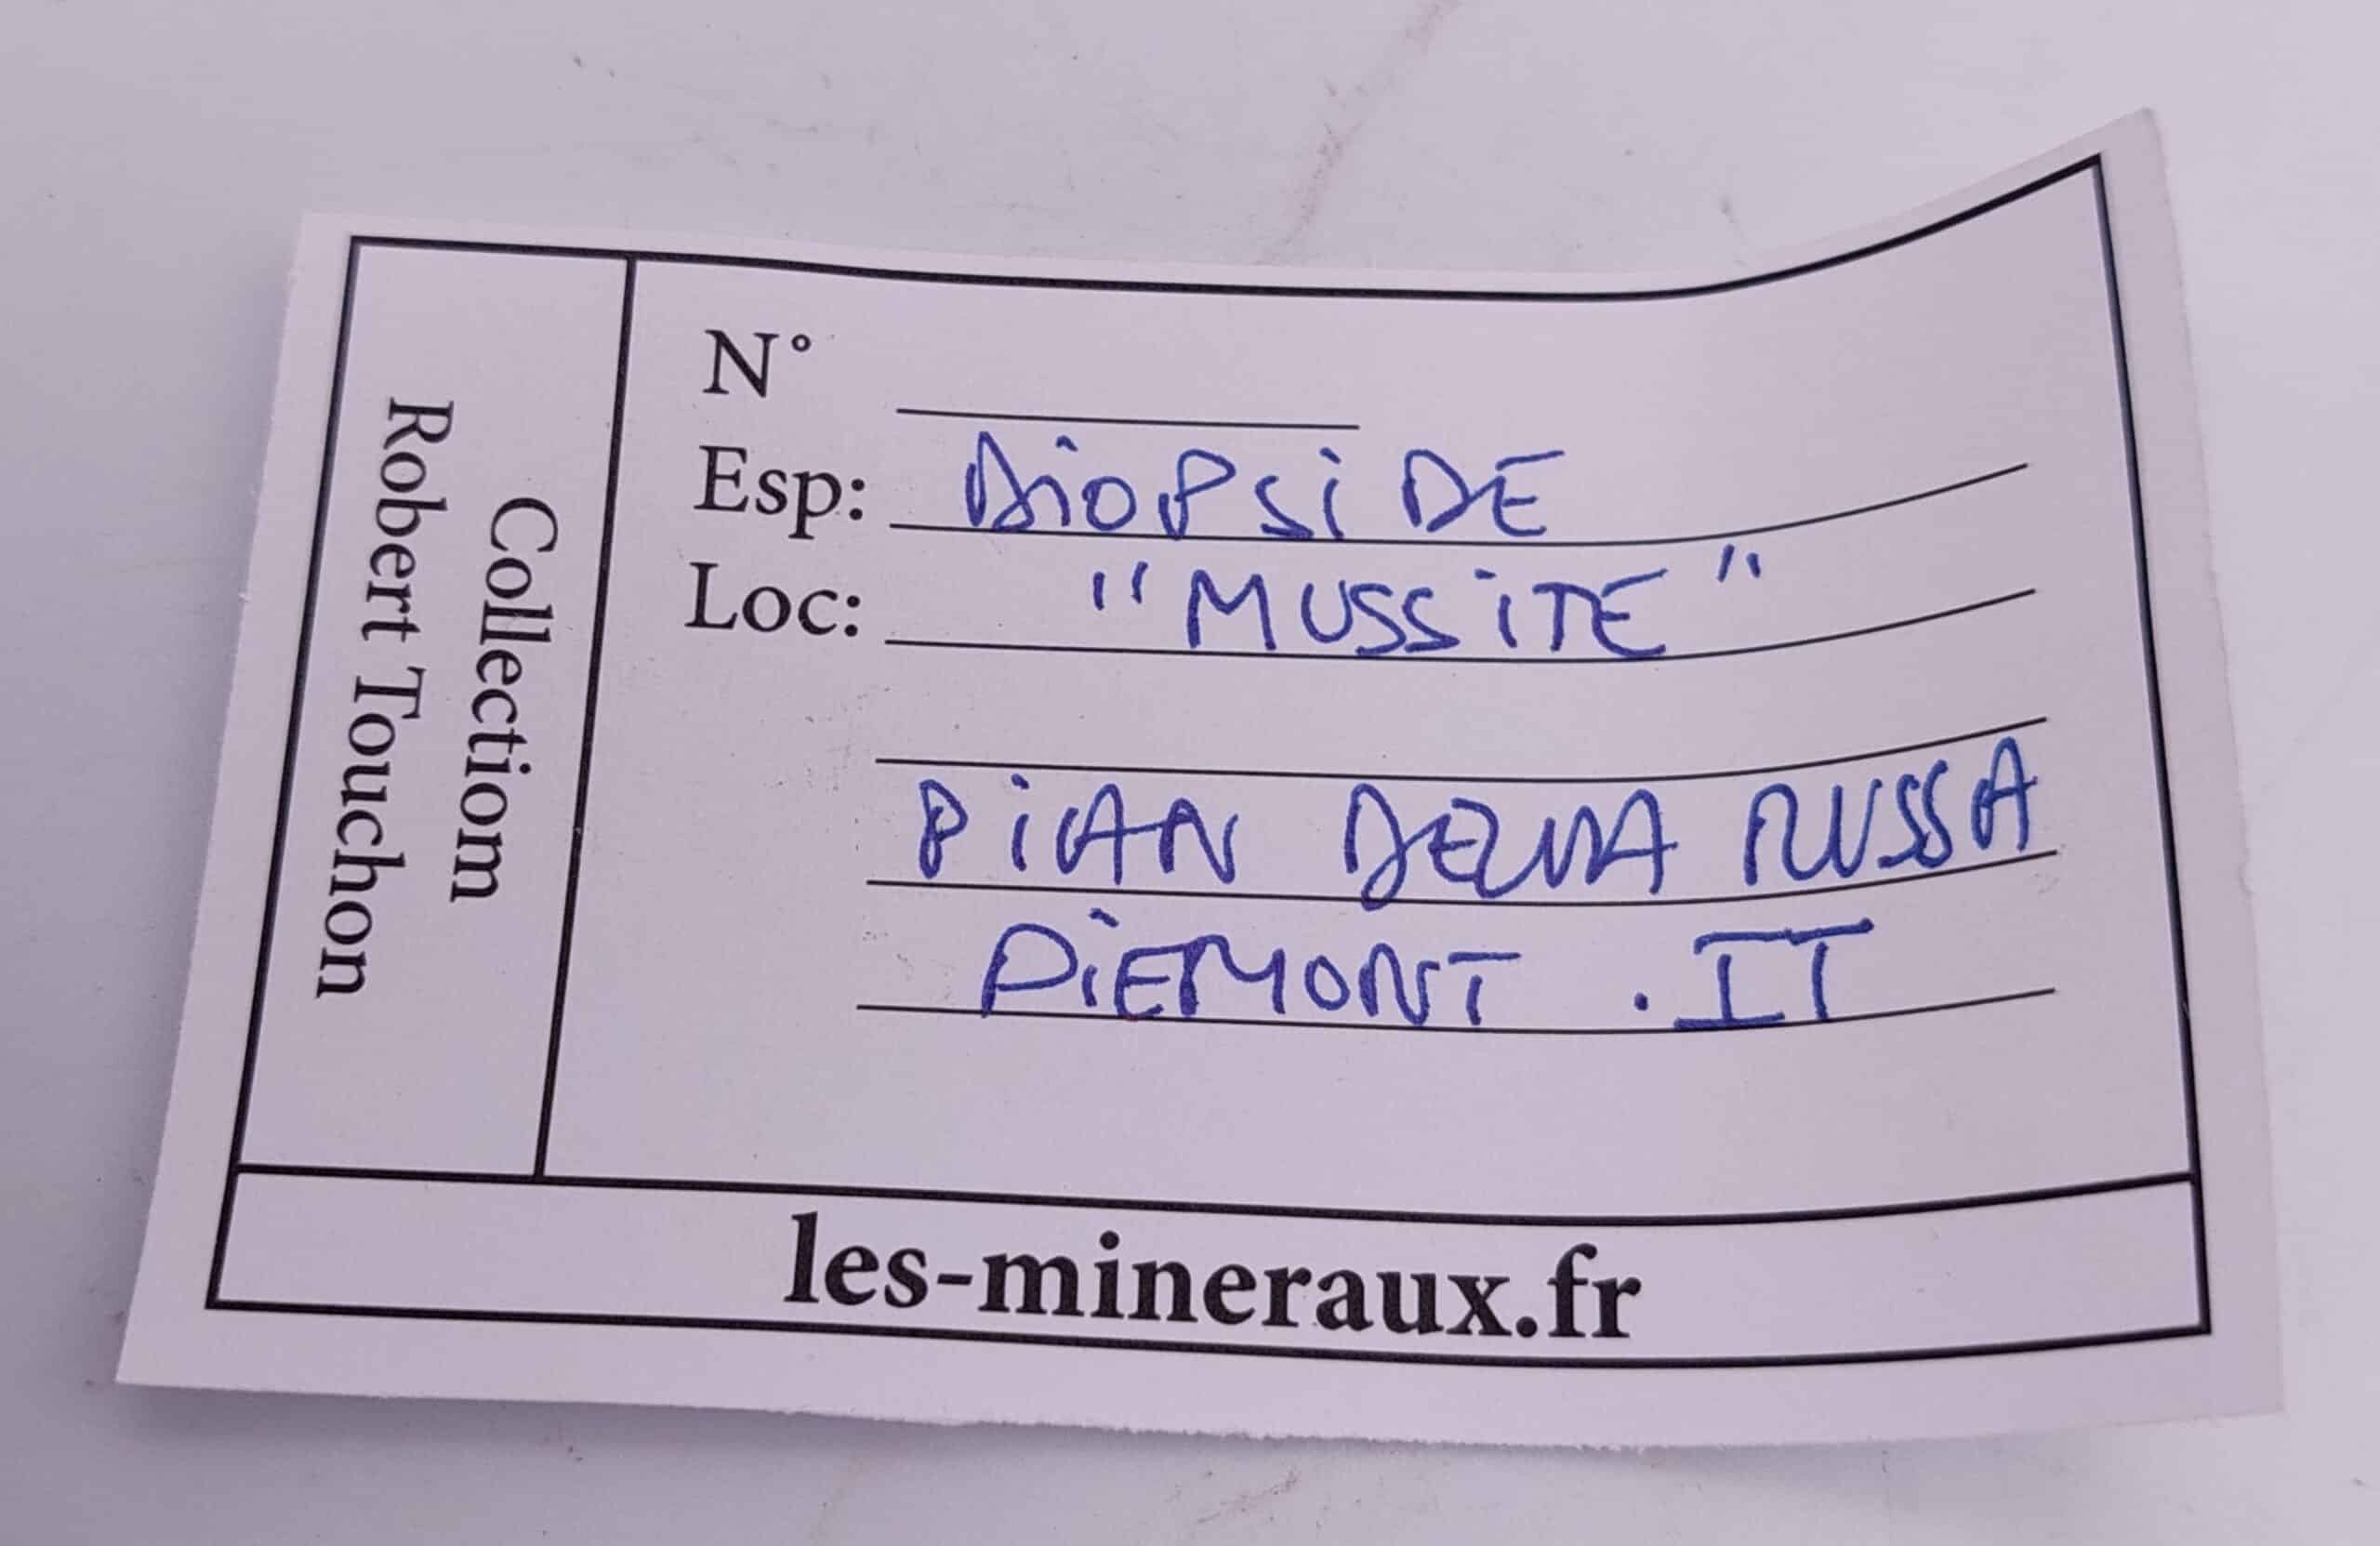 Collectiom
Robert Touchon
N°
Esp: DiOPSiDE
Loc: "MUSSiTE"
PiAN DELLA RUSSA
PiEMONT . IT
les-mineraux.fr